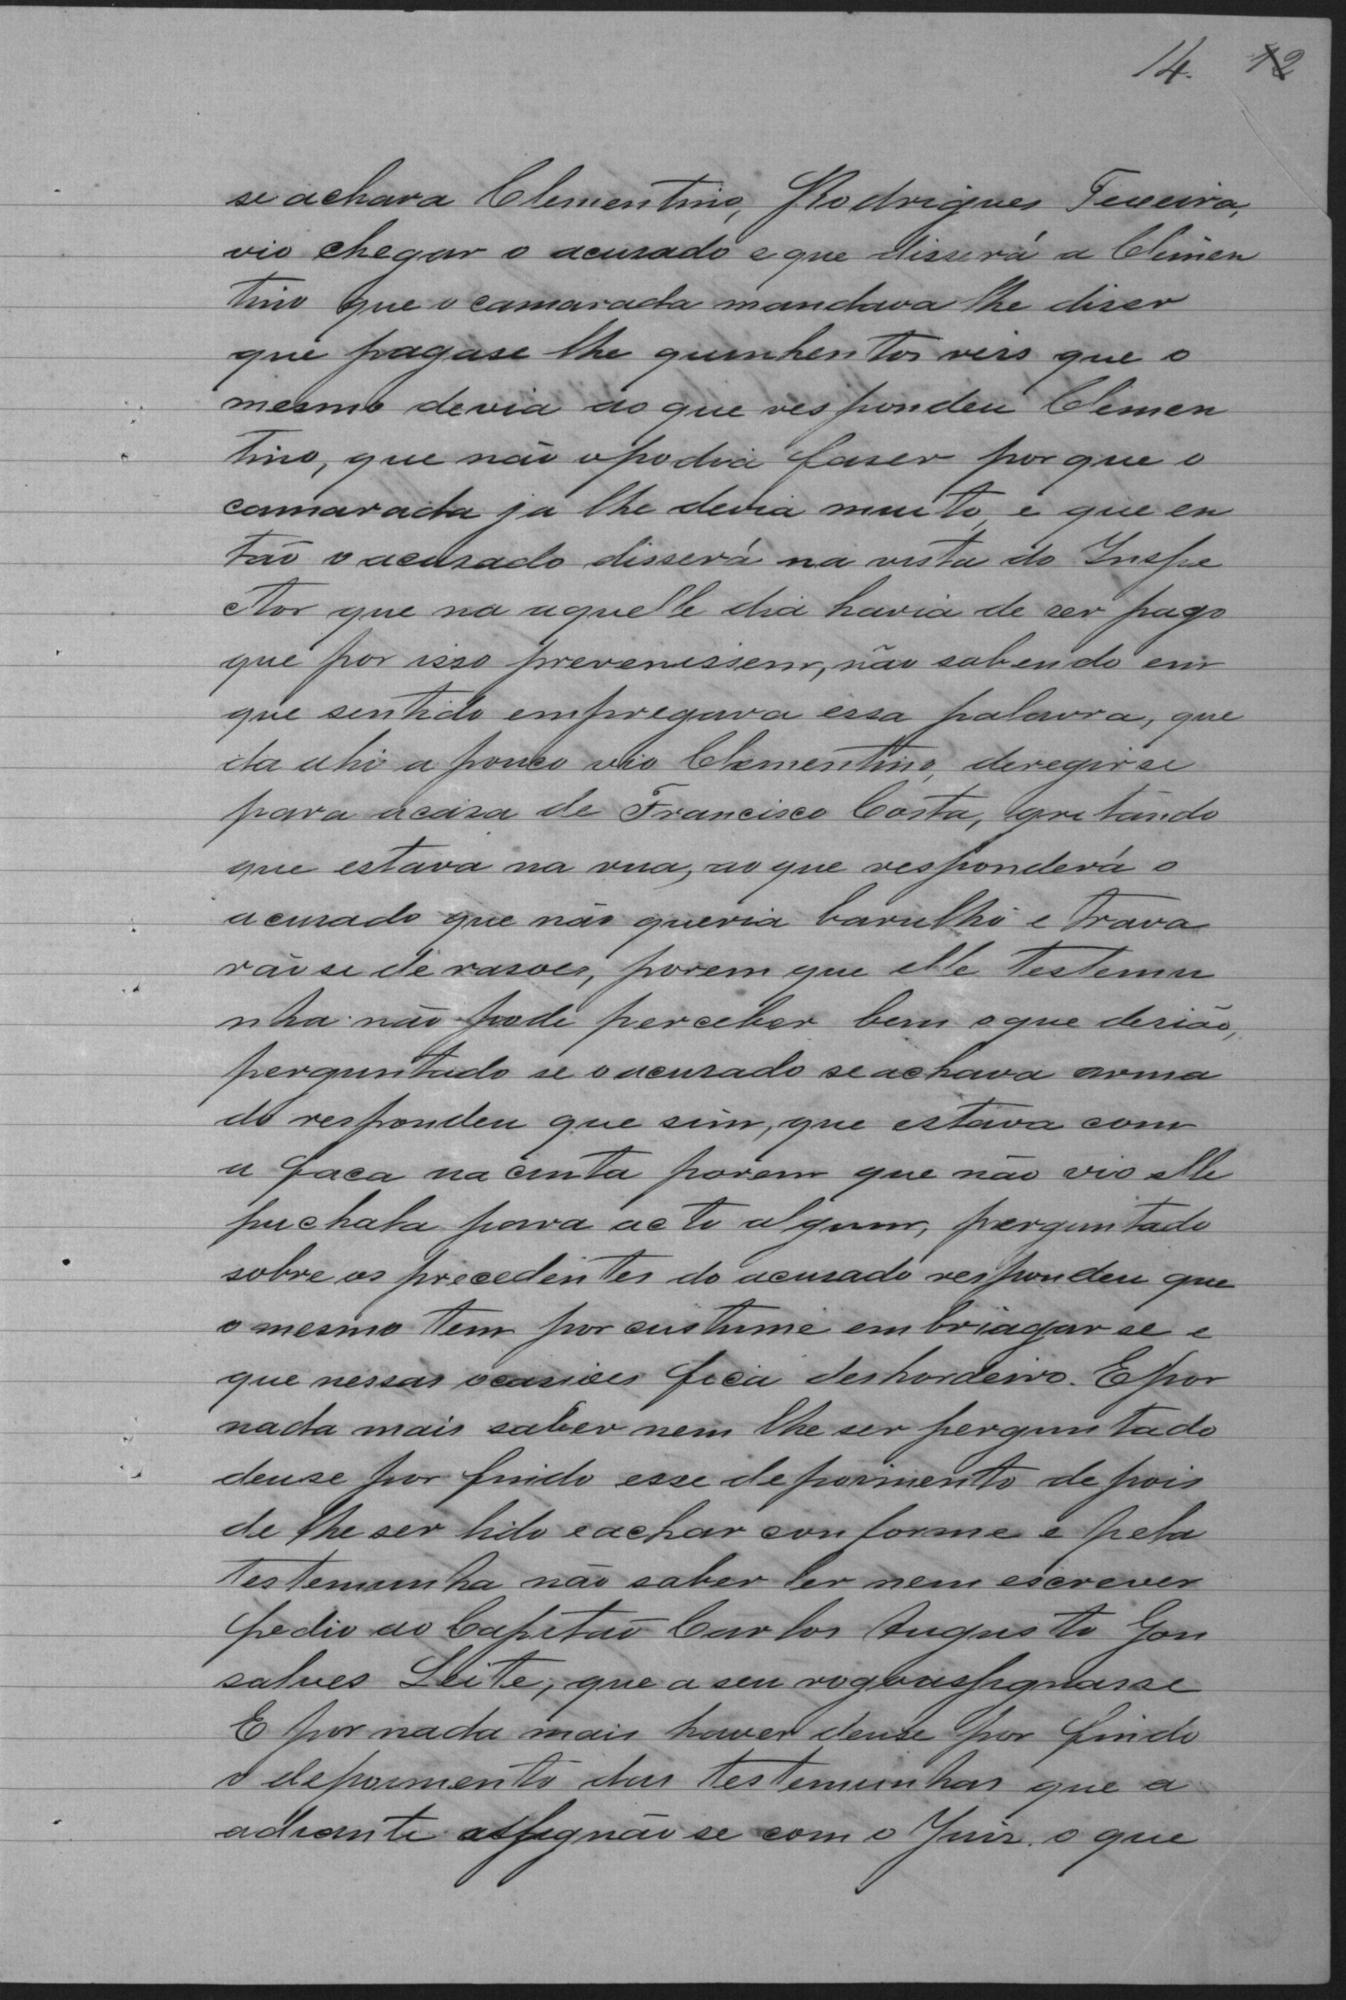 14. 12
se achava Clementino, Rodrigues Texeira,
vio chegar o acusado e que disserá a Clemen
tino que o camarada mandava lhe diser
que pagase lhe quinhentos reis que o
mesmo devia ao que respondeu Clemen
tino, que não o podia faser por que o
camarada ja lhe devia muito, e que en
tão o acusado disserá na vista do Inspe
ctor que na aquelle dia havia de ser pago
que por isso prevenissem, não sabendo em
que sentido empregava essa palavra, que
da ahi a pouco vio Clementino, deregir se
para a casa de Francisco Costa, gritando
que estava na rua, ao que responderá o
acusado que não queria barulho e trava
rão se de rasoes, porem que elle testemu
nha não pode perceber bem o que desião,
perguntado se o acusado se achava arma
do respondeu que sim, que estava com
a faca na cinta porem que não vio elle
puchala para acto algum, perguntado
sobre os precedentes do acusado respondeu que
o mesmo tem por custume embriagar se e
que nessas ocasioes fica deshordeiro. E por
nada mais saber nem lhe ser perguntado
deuse por findo esse depoimento depois
de lhe ser lido e achar conforme e pela
testemunha não saber ler nem escrever
pedio ao Capitão Carlos Augusto Gon
salves Leite, que a seu rogo asignasse
E por nada mais haver deuse por findo
o depoimento das testemunhas que a
adiante assignão se com o Juiz. o que